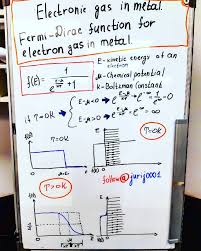 Electronic gas in metal.
Fermi-Dirac function for
electron gas in metal.
f(E) = 1 / (e^((E-μ)/kT) + 1)
E - kinetic energy of an
electron
μ - Chemical potential
K - Boltzmann Constant
if T→0K
E-μ<0 → e
E-μ>0 → e
T=0K
E
T=0K
T>0K
follow@jurij0001